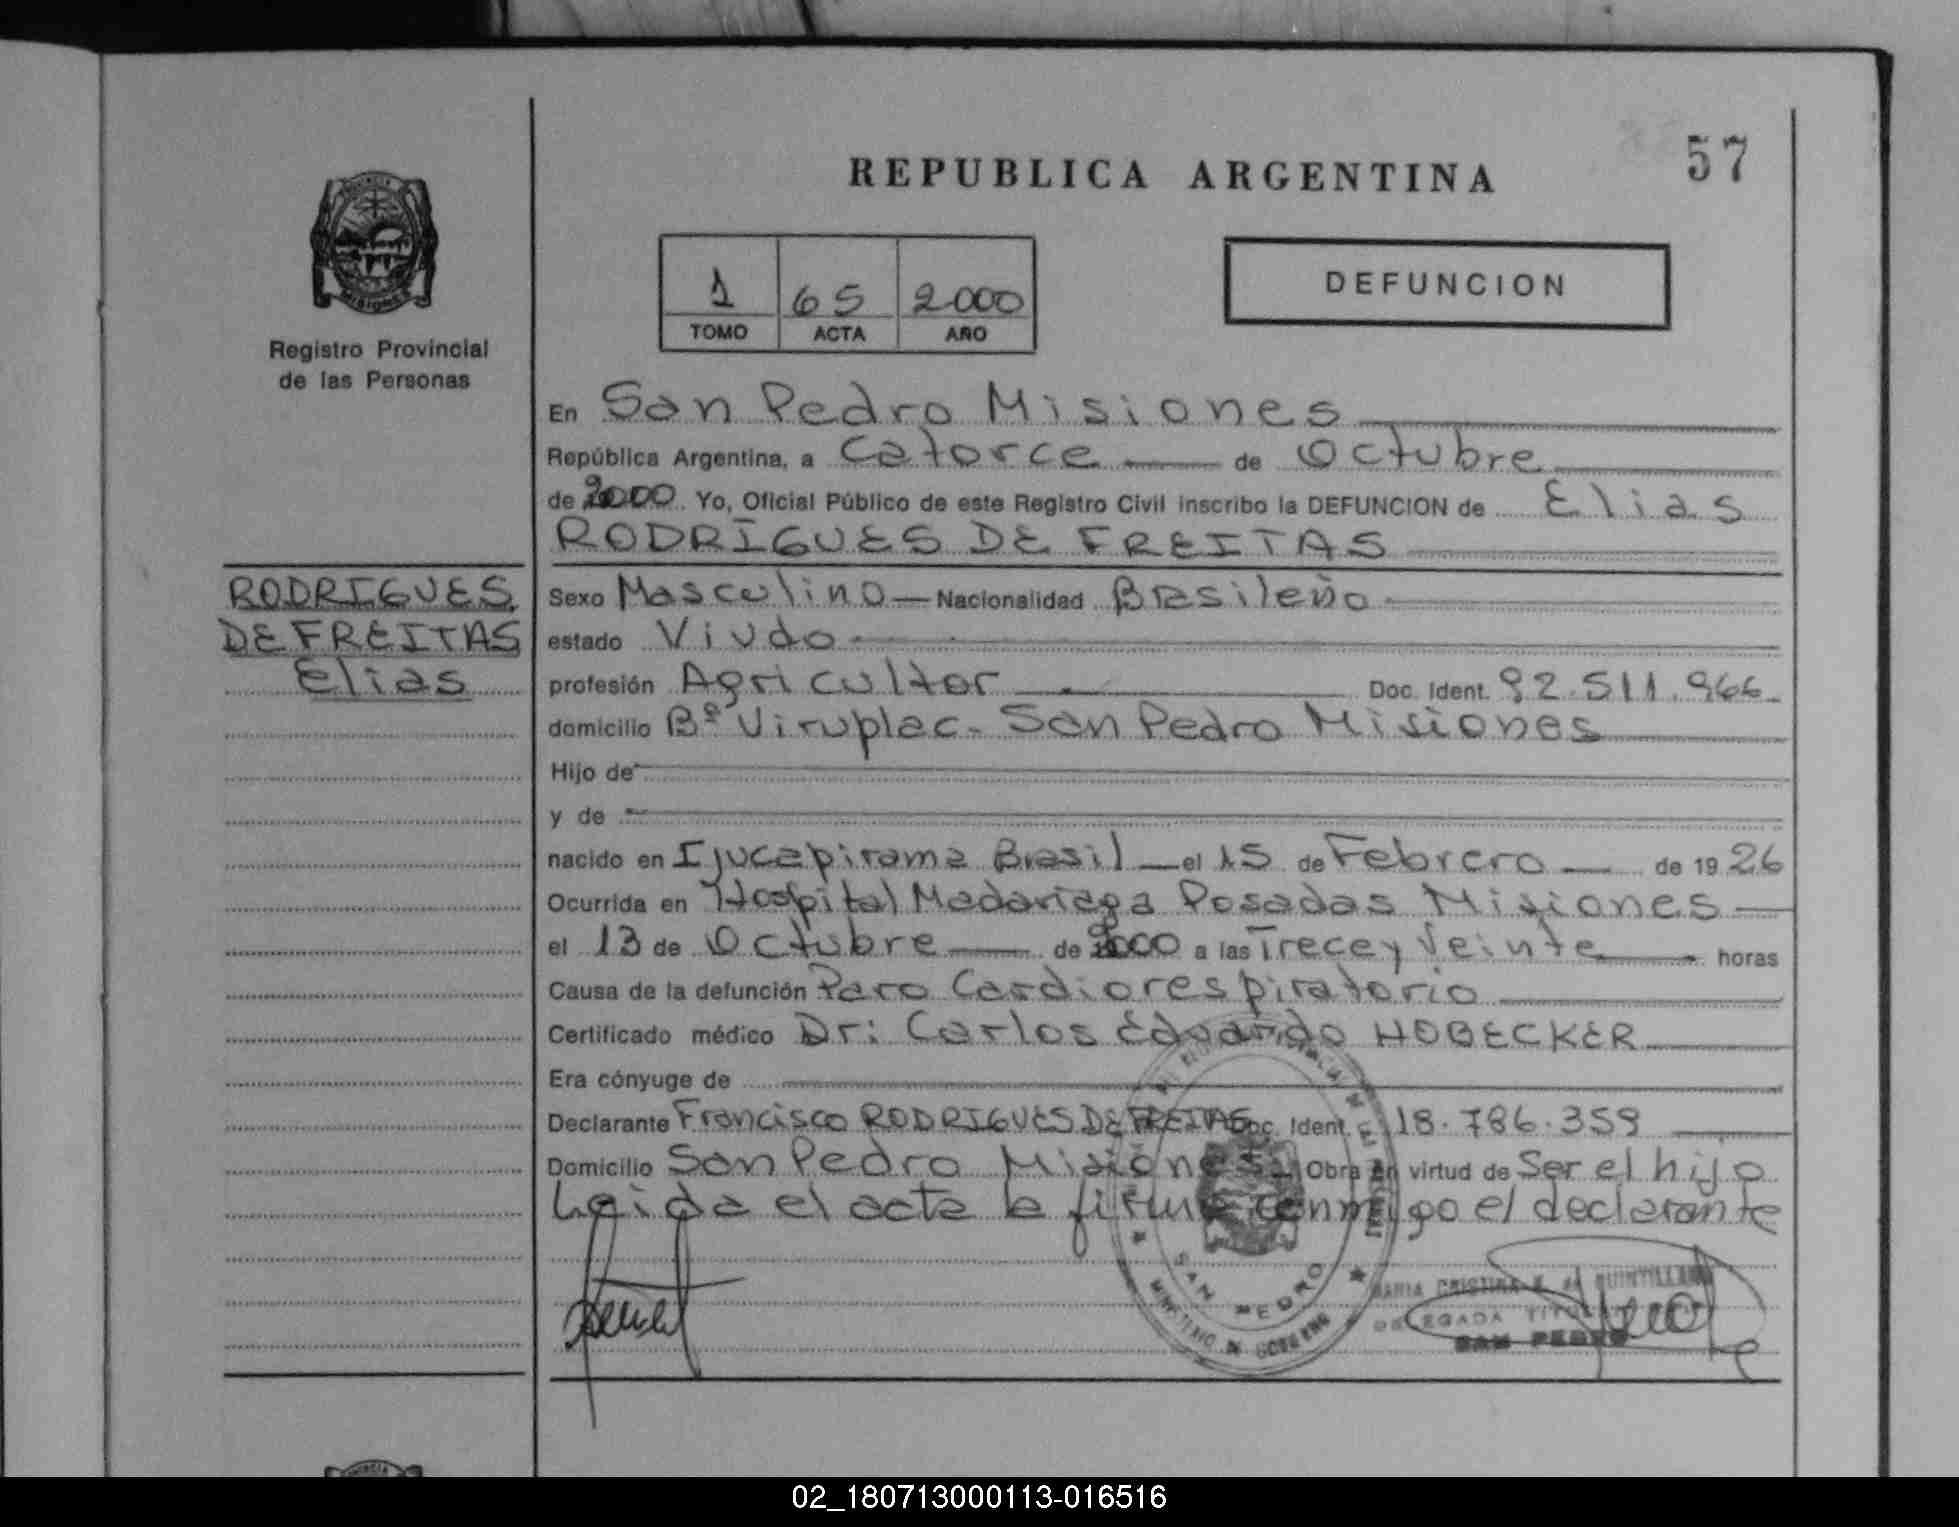 57
REPUBLICA ARGENTINA
MISIONES
Registro Provincial
de las Personas
1 65 2000
TOMO ACTA AÑO
DEFUNCION
En San Pedro Misiones
República Argentina, a Catorce de Octubre
de 2000 Yo, Oficial Público de este Registro Civil inscribo la DEFUNCION de Elias
RODRIGUES DE FREITAS
RODRIGUES
DE FREITAS
Elias
Sexo Masculino Nacionalidad Brasileño
estado Viudo
profesión Agricultor Doc. Ident. 92.511.966
domicilio Bº Viruplac. San Pedro Misiones
Hijo de
y de
nacido en Ijucapirama Brasil el 15 de Febrero de 1926
Ocurrida en Hospital Madariaga Posadas Misiones
el 13 de Octubre de 2000 a las Trece y Veinte horas
Causa de la defunción Paro Cardiorespiratorio
Certificado médico Dr: Carlos Eduardo HOBECKER
Era cónyuge de
Declarante Francisco RODRIGUES DE FREITAS Doc. Ident. 18.786.359
Domicilio San Pedro Misiones Obra en virtud de Ser el hijo
Leida el acta la firma conmigo el declarante
SAN PEDRO
MINISTERIO DE GOBIERNO
MARIA CRISTINA QUINTILLAN
DELEGADA TITULAR
SAN PEDRO
02_180713000113-016516